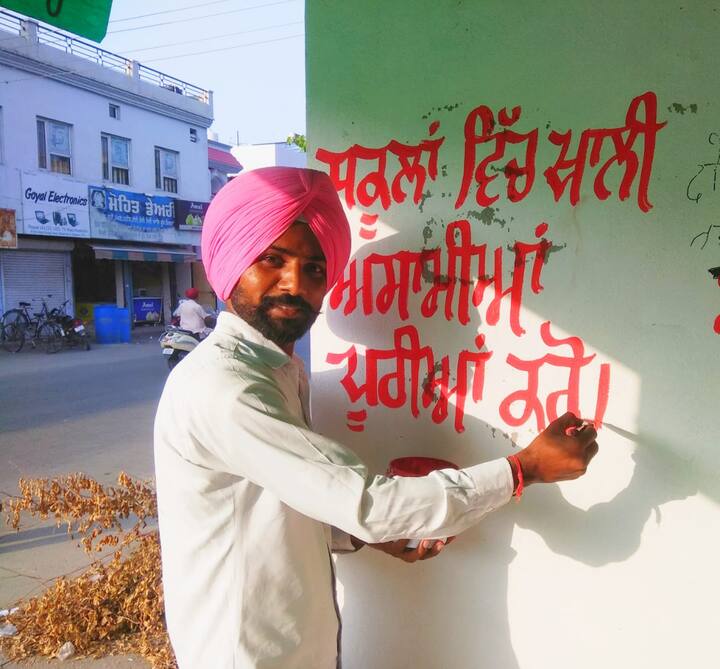 ਸਕੂਲਾਂ ਵਿੱਚ ਖਾਲੀ
ਅਸਾਮੀਆਂ
ਪੂਰੀਆਂ ਕਰੋ।
Goyal Electronics
ਮੋਹਿਤ ਡੇਅਰੀ
Amul